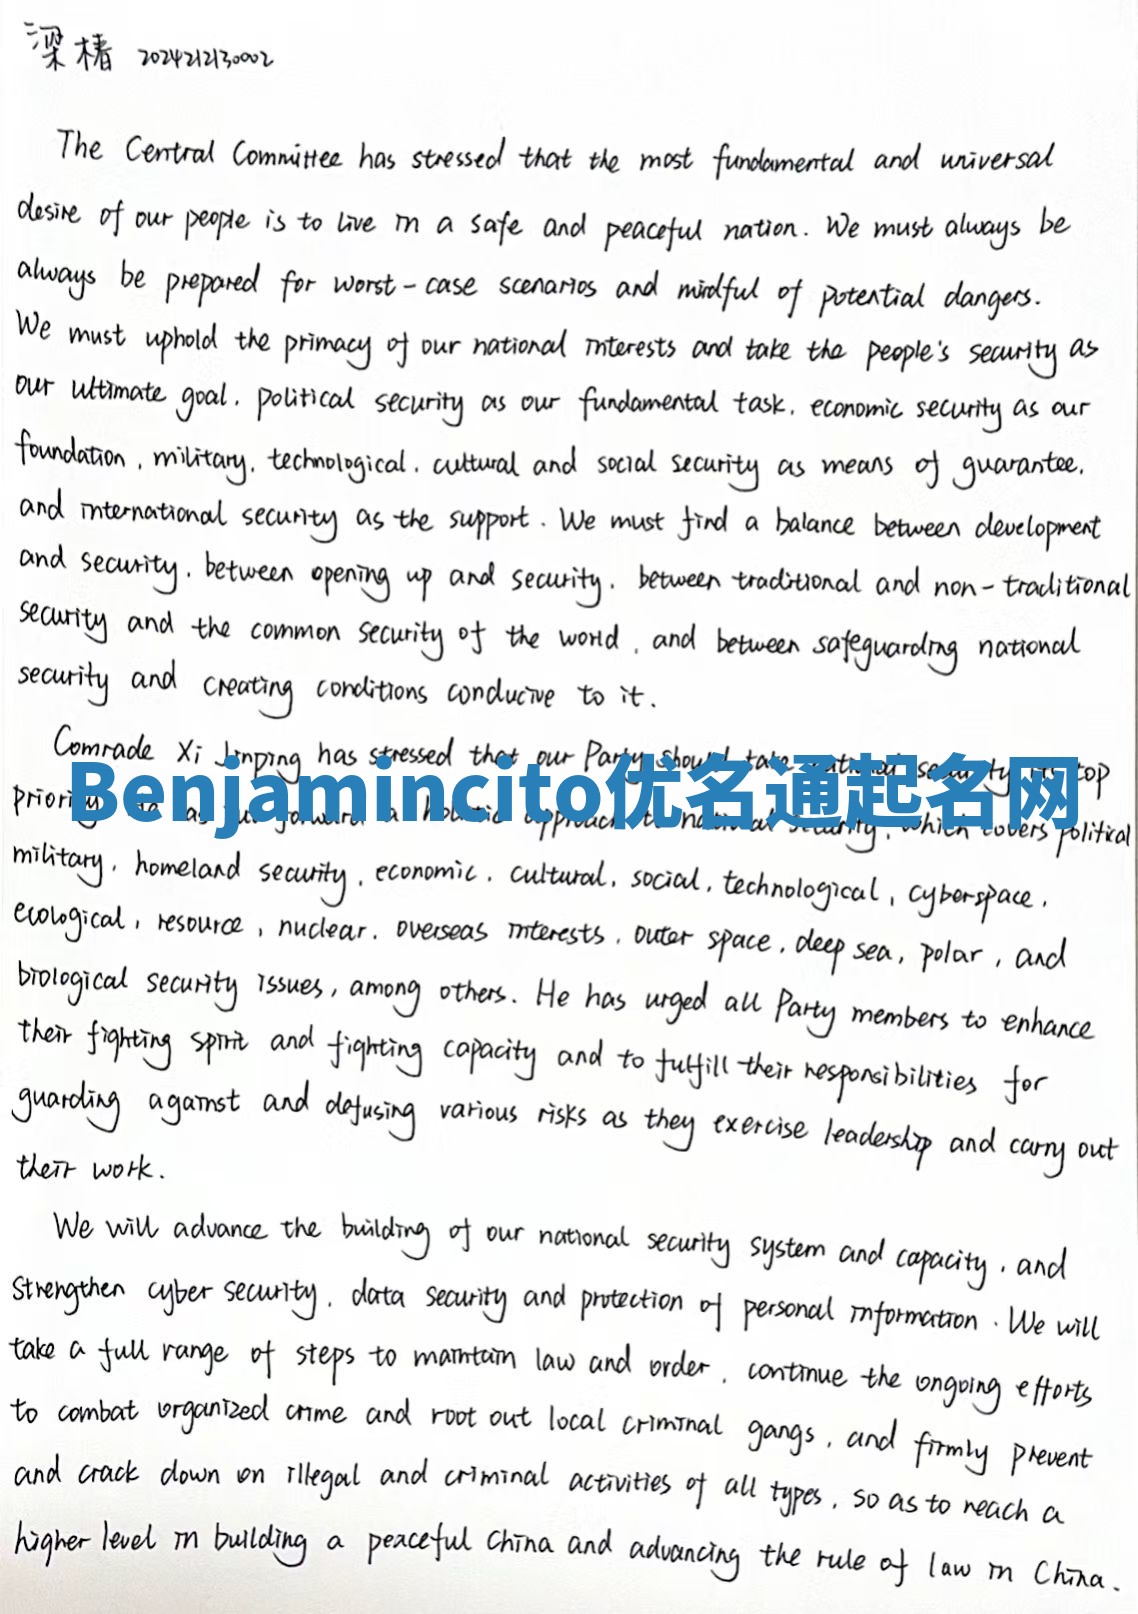 梁椿 2024212130002
The Central Committee has stressed that the most fundamental and universal
desire of our people is to live in a safe and peaceful nation. We must always be
always be prepared for worst-case scenarios and mindful of potential dangers.
We must uphold the primacy of our national interests and take the people's security as
our ultimate goal, political security as our fundamental task, economic security as our
foundation, military, technological, cultural and social security as means of guarantee,
and international security as the support. We must find a balance between development
and security, between opening up and security, between traditional and non-traditional
security and the common security of the world, and between safeguarding national
security and creating conditions conducive to it.
Comrade Xi Jinping has stressed that our Party should take national security its top
Benjamincito优名通起名网
priority a holistic approach to national security, which covers political
military, homeland security, economic, cultural, social, technological, cyberspace,
ecological, resource, nuclear, overseas interests, outer space, deep sea, polar, and
biological security issues, among others. He has urged all Party members to enhance
their fighting spirit and fighting capacity and to fulfill their responsibilities for
guarding against and defusing various risks as they exercise leadership and carry out
their work.
We will advance the building of our national security system and capacity, and
strengthen cyber security, data security and protection of personal information. We will
take a full range of steps to maintain law and order, continue the ongoing efforts
to combat organized crime and root out local criminal gangs, and firmly prevent
and crack down on illegal and criminal activities of all types, so as to reach a
higher level in building a peaceful China and advancing the rule of law in China.